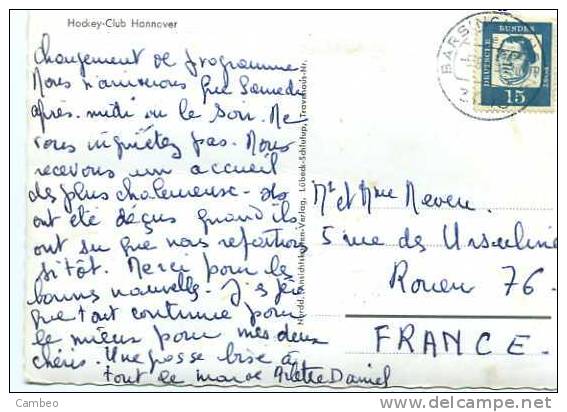 Hockey-Club Hannover
Changement de programme
Nous n'arriverons que Samedi
après-midi ou le Soir. Ne
vous inquiétez pas. Nous
recevons un accueil
des plus chaleureux - ils
ont été déçus quand ils
ont su que nous repartions
sitôt. Merci pour les
bonnes nouvelles. J'espère
que tout continue pour
le mieux pour mes deux
chéris. Une grosse bise à
tout le monde Daniel
Nordd. Ansichtskarten-Verlag, Lübeck-Schlutup, Travehaus-Nr.
BARSINGH
DEUTSCHE BUNDESPOST
15
Mr et Mme Neveu.
5 rue des Ursulines
Rouen 76.
FRANCE.
Cambeo
delcampe.net